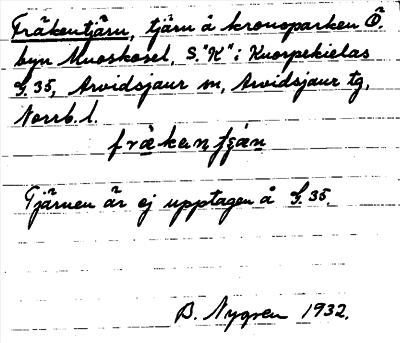 Fräkentjärn, tjärn å kronoparken Ö.
byn Muoskosel, S. "K" i Kuorpekielas
G. 35, Arvidsjaur sn, Arvidsjaur tg,
Norrb. l.
fräkentjän
Tjärnen är ej upptagen å G. 35.
B. Nygren 1932.